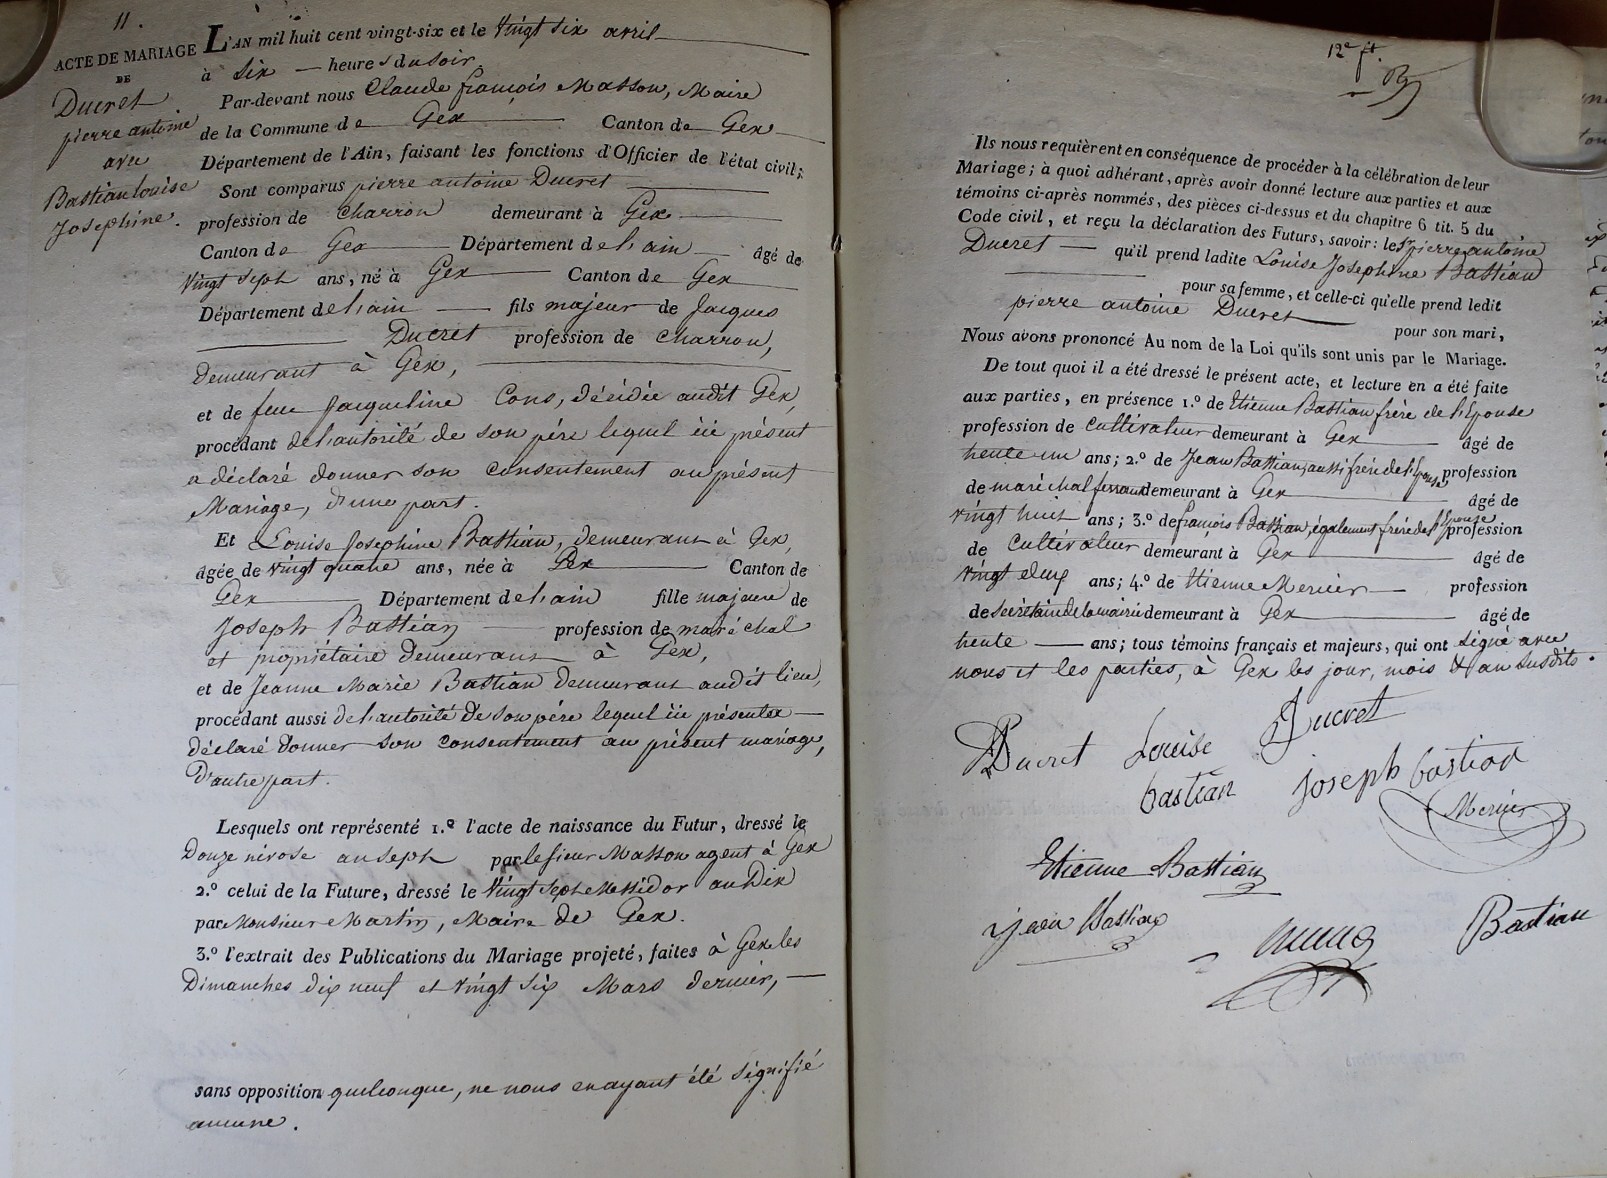 11.
ACTE DE MARIAGE
DE
Ducret
pierre antoine
avec
Bastian louise
Josephine.
L'AN mil huit cent vingt-six et le vingt six avril
à six heures du soir.
Par-devant nous Claude françois Masson, Maire
de la Commune de Gex Canton de Gex
Département de l'Ain, faisant les fonctions d'Officier de l'état civil;
Sont comparus pierre antoine Ducret
profession de charron demeurant à Gex
Canton de Gex Département de l'ain âgé de
vingt sept ans, né à Gex Canton de Gex
Département de l'ain fils majeur de Jacques
Ducret profession de charron,
demeurant à Gex,
et de feue Jacqueline Cons, décédée audit Gex,
procédant de l'autorité de son père lequel ici présent
a déclaré donner son consentement au présent
Mariage, d'une part.
Et Louise Josephine Bastian, demeurant à Gex,
âgée de vingt quatre ans, née à Gex Canton de
Gex Département de l'ain fille majeure de
Joseph Bastian profession de maréchal
et propriétaire demeurant à Gex,
et de Jeanne Marie Bastian demeurant audit lieu,
procédant aussi de l'autorité de son père lequel ici présent a
déclaré donner son consentement au présent mariage,
d'autre part.
Lesquels ont représenté 1.º l'acte de naissance du Futur, dressé le
Douze nivose an sept par le sieur Masson agent à Gex
2.º celui de la Future, dressé le vingt sept Messidor an Dix
par Monsieur Martin, Maire de Gex.
3.º l'extrait des Publications du Mariage projeté, faites à Gex les
Dimanches dix neuf et vingt six Mars dernier,
sans opposition quelconque, ne nous en ayant été signifié
aucune.
12e ft.
Ils nous requièrent en conséquence de procéder à la célébration de leur
Mariage; à quoi adhérant, après avoir donné lecture aux parties et aux
témoins ci-après nommés, des pièces ci-dessus et du chapitre 6 tit. 5 du
Code civil, et reçu la déclaration des Futurs, savoir: le Sr pierre antoine
Ducret qu'il prend ladite Louise Josephine Bastian
pour sa femme, et celle-ci qu'elle prend ledit
pierre antoine Ducret pour son mari,
Nous avons prononcé Au nom de la Loi qu'ils sont unis par le Mariage.
De tout quoi il a été dressé le présent acte, et lecture en a été faite
aux parties, en présence 1.º de Etienne Bastian frère de l'Epouse
profession de cultivateur demeurant à Gex âgé de
trente un ans; 2.º de Jean Bastian, aussi frère de l'Epouse profession
de maréchal ferrant demeurant à Gex âgé de
vingt huit ans; 3.º de françois Bastian, également frère de l'Epouse profession
de cultivateur demeurant à Gex âgé de
vingt deux ans; 4.º de Etienne Mercier profession
de secrétaire de la mairie demeurant à Gex âgé de
trente ans; tous témoins français et majeurs, qui ont signé avec
nous et les parties, à Gex les jour, mois & an susdits.
Ducret Louise Ducret
bastian joseph bastian
Mercier
Etienne Bastian
jean Bastian
Bastian